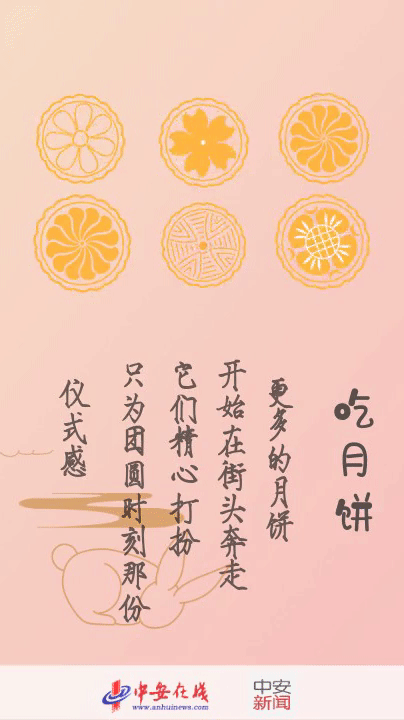 吃月饼
更多的月饼
开始在街头奔走
它们精心打扮
只为团圆时刻那份
仪式感
中安在线
www.anhuinews.com
中安
新闻